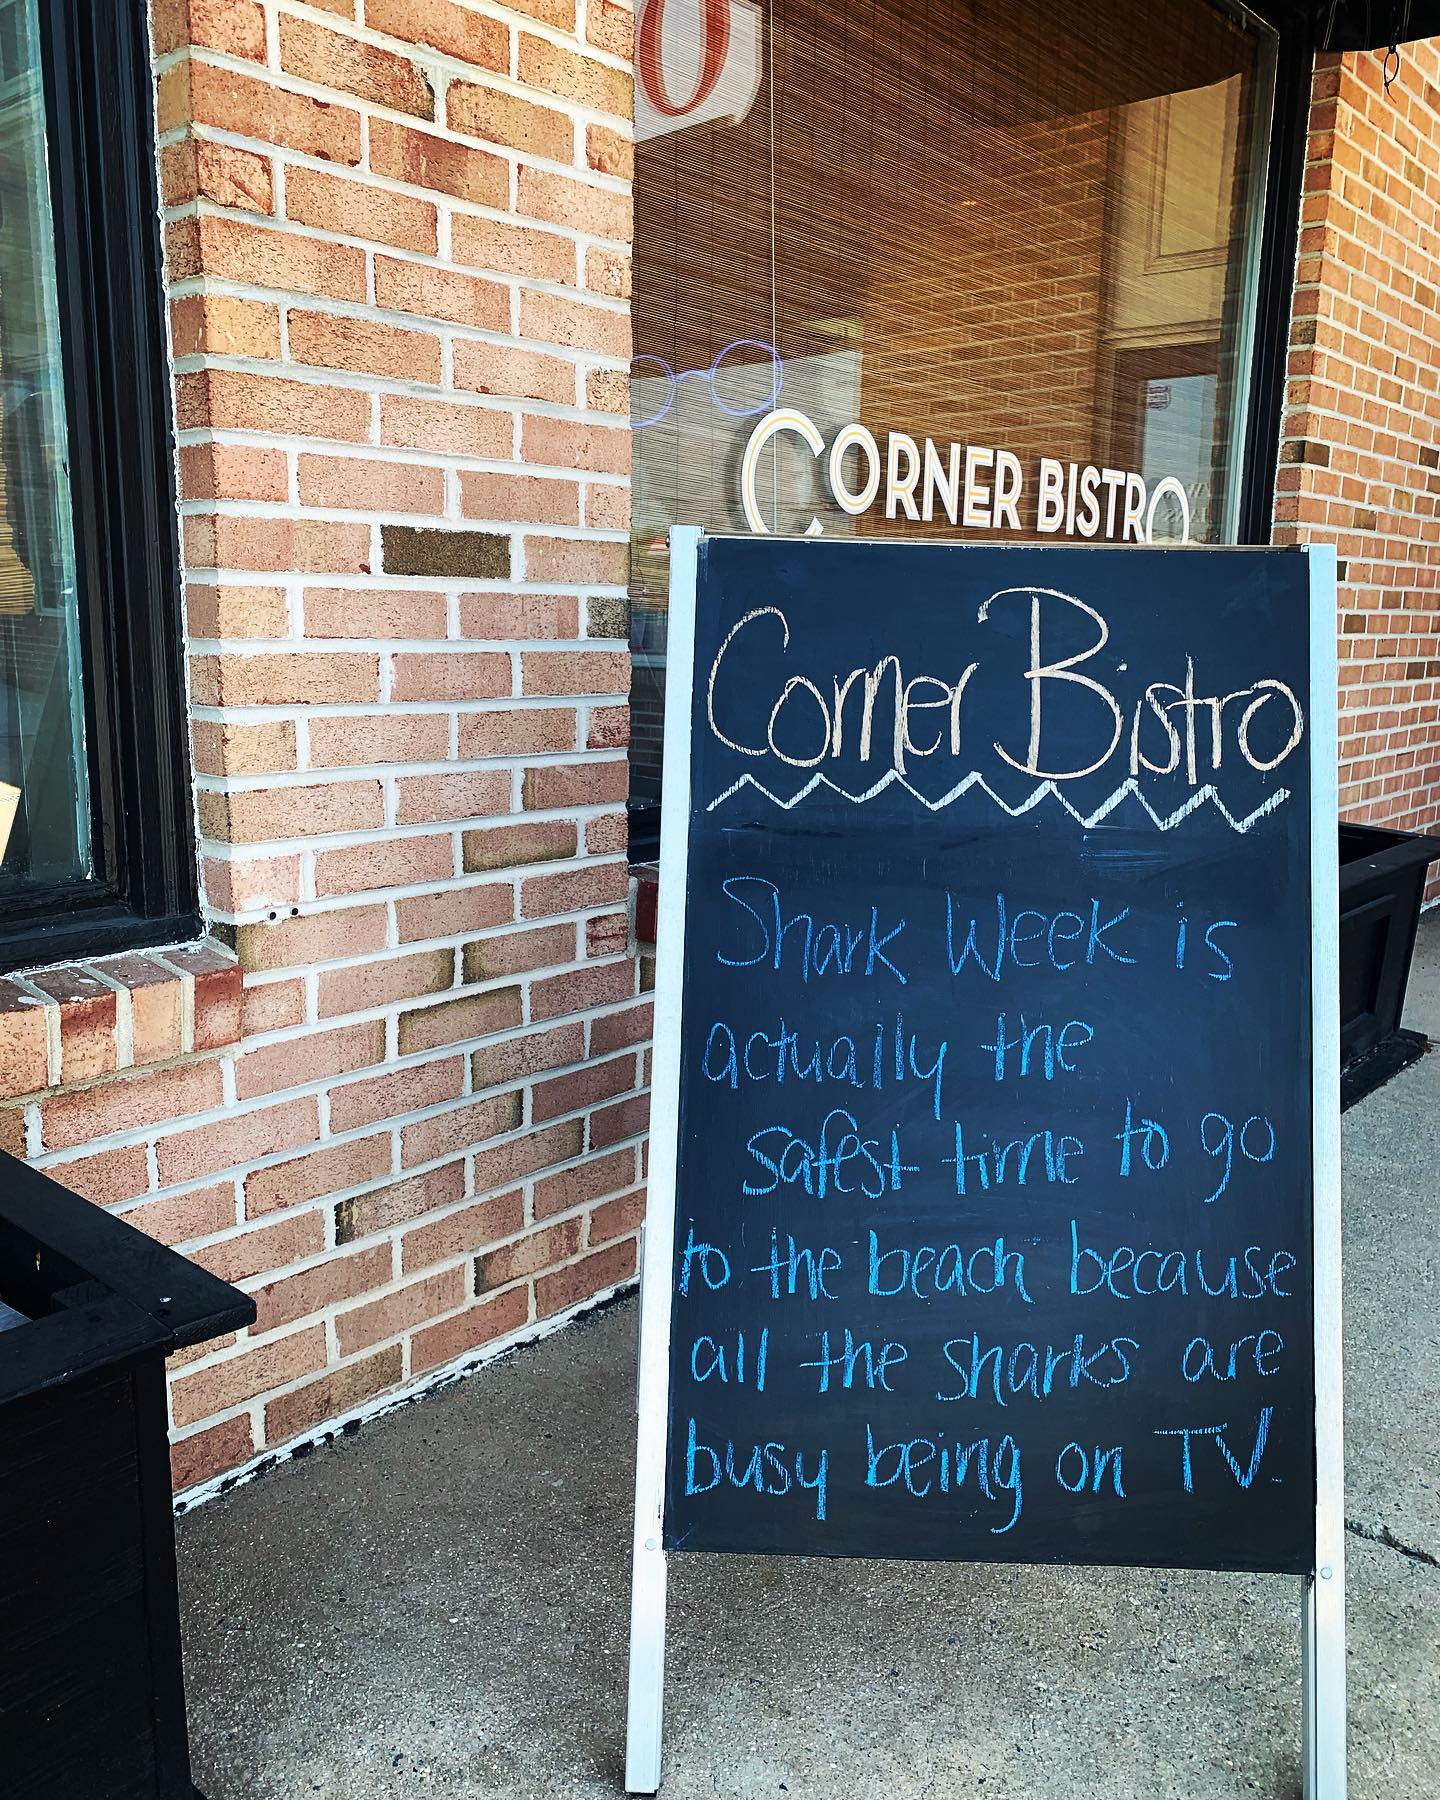 CORNER BISTRO
Corner Bistro
Shark Week is
actually the
safest time to go
to the beach because
all the sharks are
busy being on TV.